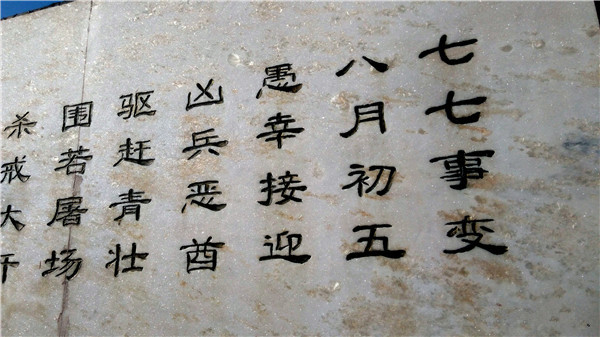 七七事变
八月初五
愚幸接迎
凶兵恶酋
驱赶青壮
围若屠场
杀戒大开